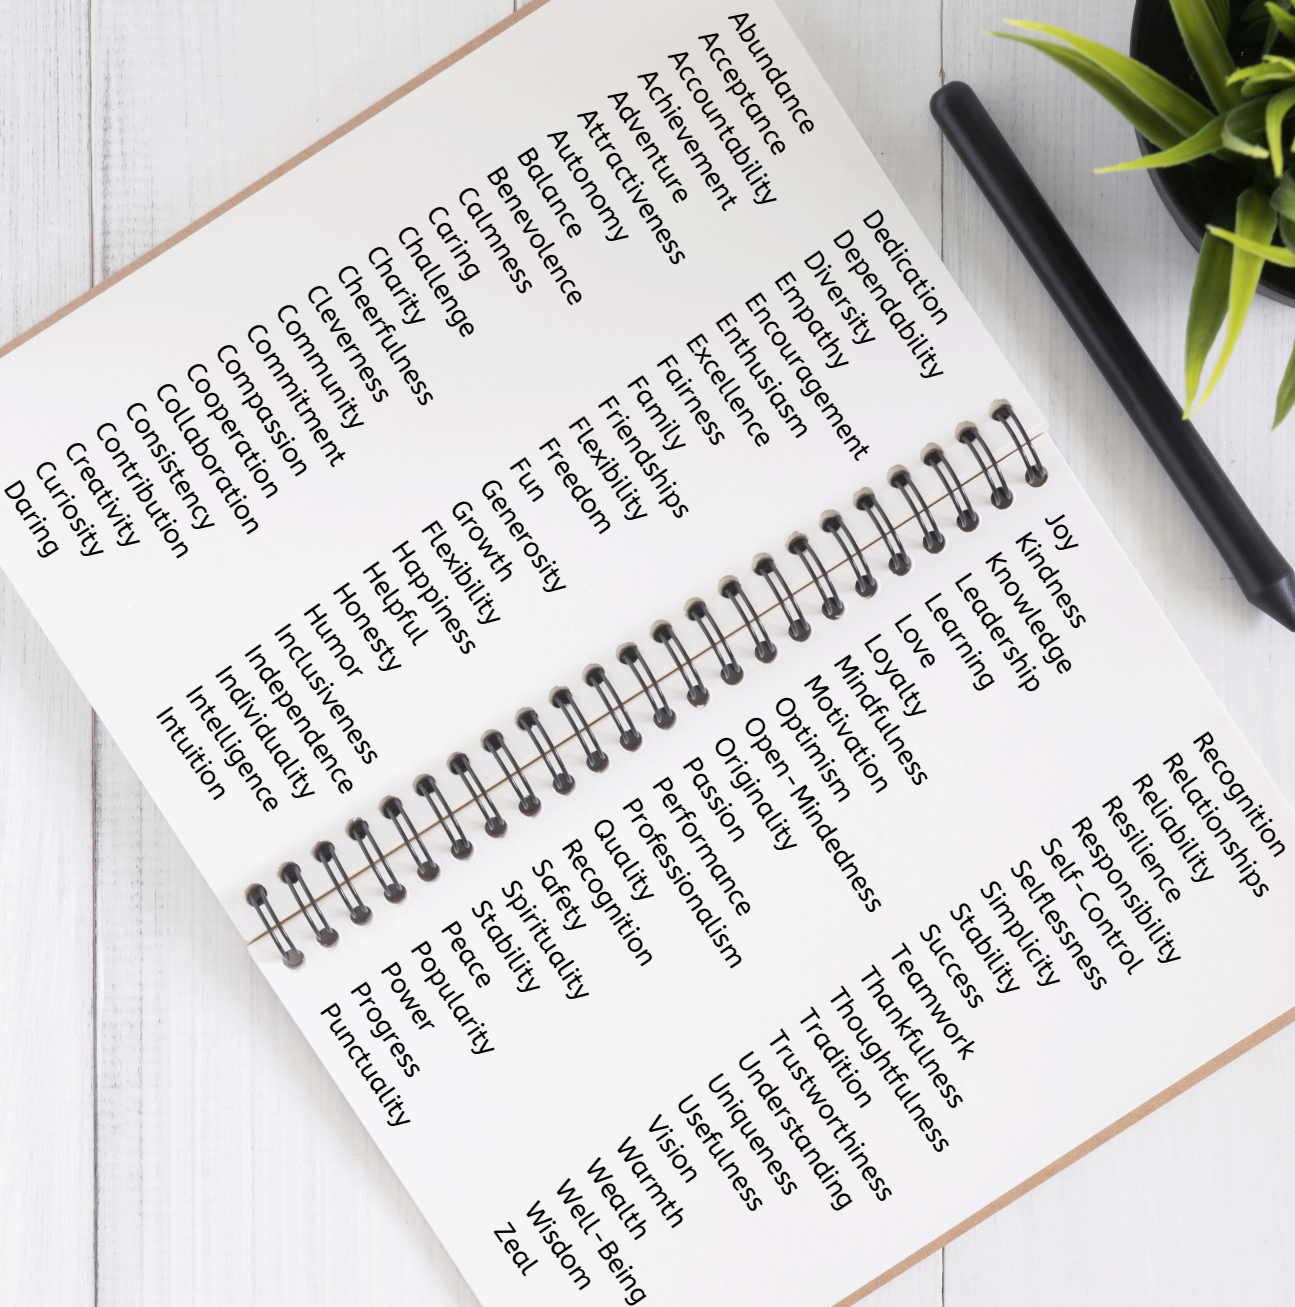 Abundance
Acceptance
Accountability
Achievement
Adventure
Attractiveness
Autonomy
Balance
Benevolence
Calmness
Caring
Challenge
Charity
Cheerfulness
Cleverness
Community
Commitment
Compassion
Cooperation
Collaboration
Consistency
Contribution
Creativity
Curiosity
Daring
Dedication
Dependability
Diversity
Empathy
Encouragement
Enthusiasm
Excellence
Fairness
Family
Friendships
Flexibility
Freedom
Fun
Generosity
Growth
Flexibility
Happiness
Helpful
Honesty
Humor
Inclusiveness
Independence
Individuality
Intelligence
Intuition
Joy
Kindness
Knowledge
Leadership
Learning
Love
Loyalty
Mindfulness
Motivation
Optimism
Open-Mindedness
Originality
Passion
Performance
Professionalism
Quality
Recognition
Safety
Spirituality
Stability
Peace
Popularity
Power
Progress
Punctuality
Recognition
Relationships
Reliability
Resilience
Responsibility
Self-Control
Selflessness
Simplicity
Stability
Success
Teamwork
Thankfulness
Thoughtfulness
Tradition
Trustworthiness
Understanding
Uniqueness
Usefulness
Vision
Warmth
Wealth
Well-Being
Wisdom
Zeal